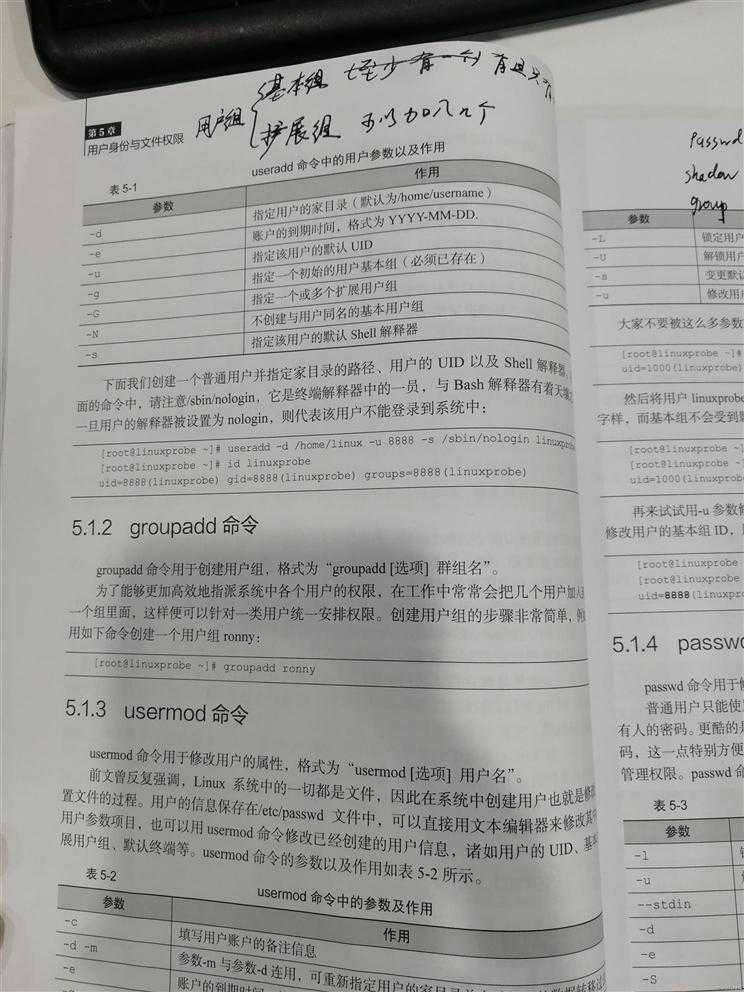 用户组 基本组 (至少有一个)
扩展组 可以加几个
第5章
用户身份与文件权限
表 5-1
useradd 命令中的用户参数以及作用
参数 作用
-d 指定用户的家目录（默认为/home/username）
-e 账户的到期时间，格式为 YYYY-MM-DD.
-u 指定该用户的默认 UID
-g 指定一个初始的用户基本组（必须已存在）
-G 指定一个或多个扩展用户组
-N 不创建与用户同名的基本用户组
-s 指定该用户的默认 Shell 解释器
下面我们创建一个普通用户并指定家目录的路径、用户的 UID 以及 Shell 解释器
面的命令中，请注意/sbin/nologin，它是终端解释器中的一员，与 Bash 解释器有着天壤之
一旦用户的解释器被设置为 nologin，则代表该用户不能登录到系统中：
[root@linuxprobe ~]# useradd -d /home/linux -u 8888 -s /sbin/nologin linuxprobe
[root@linuxprobe ~]# id linuxprobe
uid=8888(linuxprobe) gid=8888(linuxprobe) groups=8888(linuxprobe)
5.1.2 groupadd 命令
groupadd 命令用于创建用户组，格式为“groupadd [选项] 群组名”。
为了能够更加高效地指派系统中各个用户的权限，在工作中常常会把几个用户加入到
一个组里面，这样便可以针对一类用户统一安排权限。创建用户组的步骤非常简单，例如
用如下命令创建一个用户组 ronny：
[root@linuxprobe ~]# groupadd ronny
5.1.3 usermod 命令
usermod 命令用于修改用户的属性，格式为“usermod [选项] 用户名”。
前文曾反复强调，Linux 系统中的一切都是文件，因此在系统中创建用户也就是修改
置文件的过程。用户的信息保存在/etc/passwd 文件中，可以直接用文本编辑器来修改其中
用户参数项目，也可以用 usermod 命令修改已经创建的用户信息，诸如用户的 UID、基本
展用户组、默认终端等。usermod 命令的参数以及作用如表 5-2 所示。
表 5-2
usermod 命令中的参数及作用
参数 作用
-c 填写用户账户的备注信息
-d -m 参数-m 与参数-d 连用，可重新指定用户的家目录
-e 账户的到期时间
passwd
shadow
group
参数
-L 锁定用户
-U 解锁用户
-s 变更默认
-u 修改用户
大家不要被这么多参数
[root@linuxprobe ~]#
uid=1000(linuxprobe)
然后将用户 linuxprobe
字样，而基本组不会受到影
[root@linuxprobe ~]
[root@linuxprobe ~]
uid=1000(linuxprobe
再来试试用-u 参数修
修改用户的基本组 ID，
[root@linuxprobe
[root@linuxprobe
uid=8888(linuxprob
5.1.4 passwd
passwd 命令用于修
普通用户只能使用
有人的密码。更酷的是
码，这一点特别方便
管理权限。passwd 命
表 5-3
参数
-l
-u
--stdin
-d
-e
-S